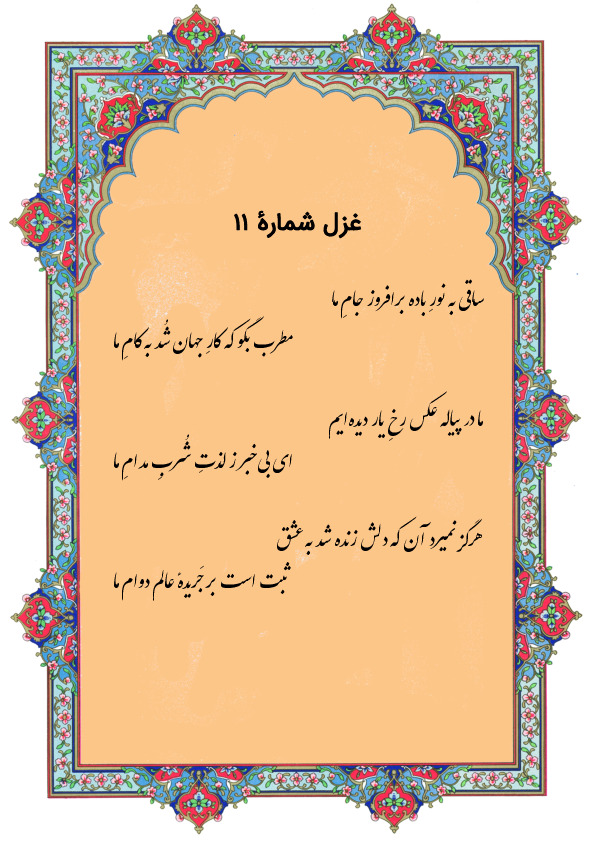 غزل شمارهٔ ۱۱
ساقی به نورِ باده برافروز جامِ ما
مطرب بگو که کارِ جهان شُد به کامِ ما
ما در پیاله عکس رخِ یار دیده‌ایم
ای بی‌خبر ز لذتِ شُربِ مدامِ ما
هرگز نمیرد آن که دلش زنده شد به عشق
ثبت است بر جَریدهٔ عالم دوام ما